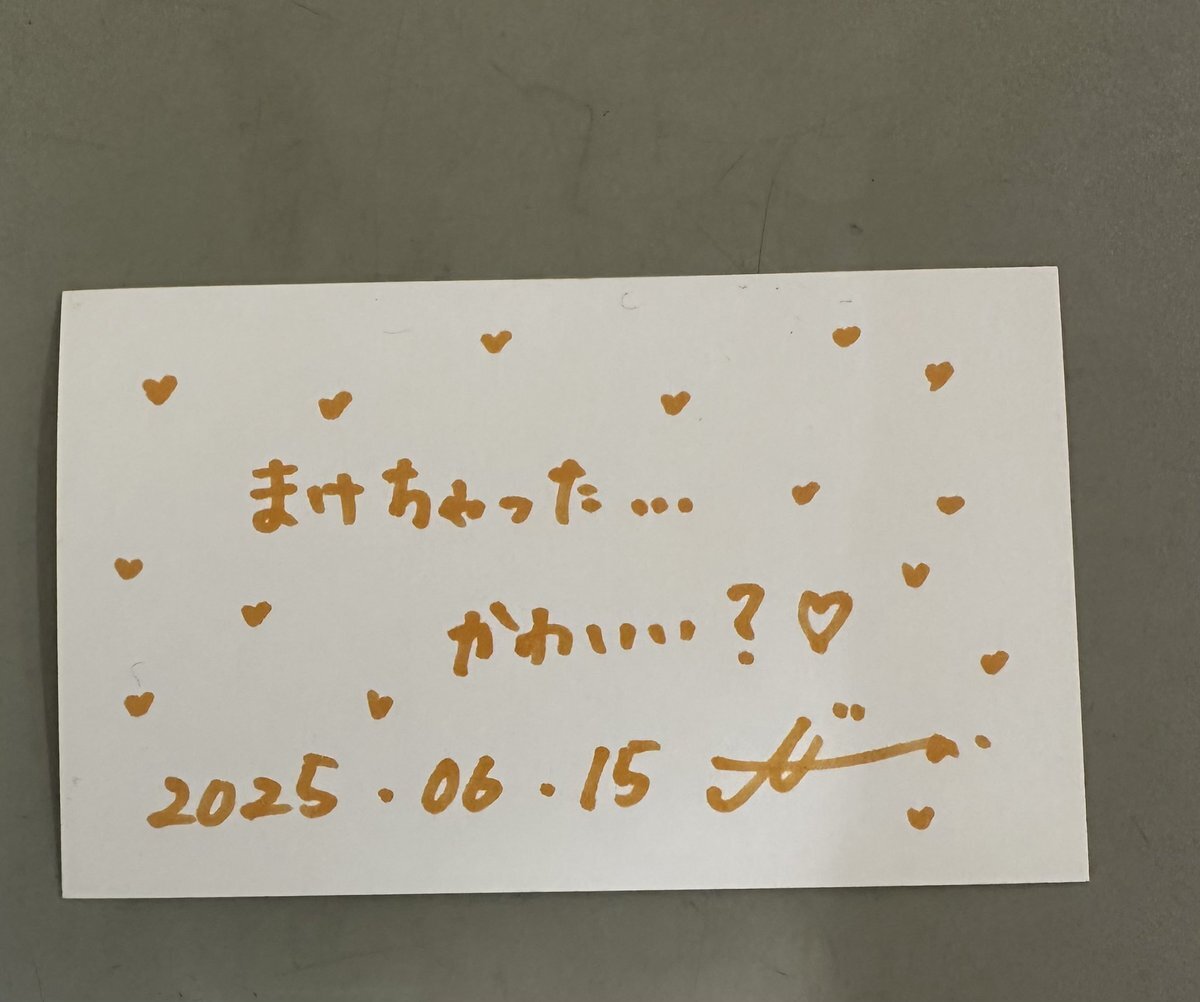 まけちゃった...
かわいい?♡
2025.06.15